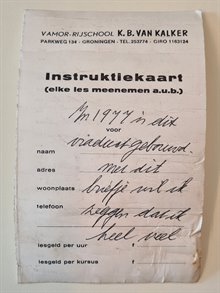 VAMOR-RIJSCHOOL K.B. VAN KALKER
PARKWEG 134 - GRONINGEN - TEL. 253774 - GIRO 1163124
Instruktiekaart
(elke les meenemen a.u.b.)
In 1977 is dit
voor
viaduct gebouwd.
naam
met dit
adres
briefje wil ik
woonplaats
zeggen dat ik
telefoon
heel veel
lesgeld per uur f
lesgeld per kursus f